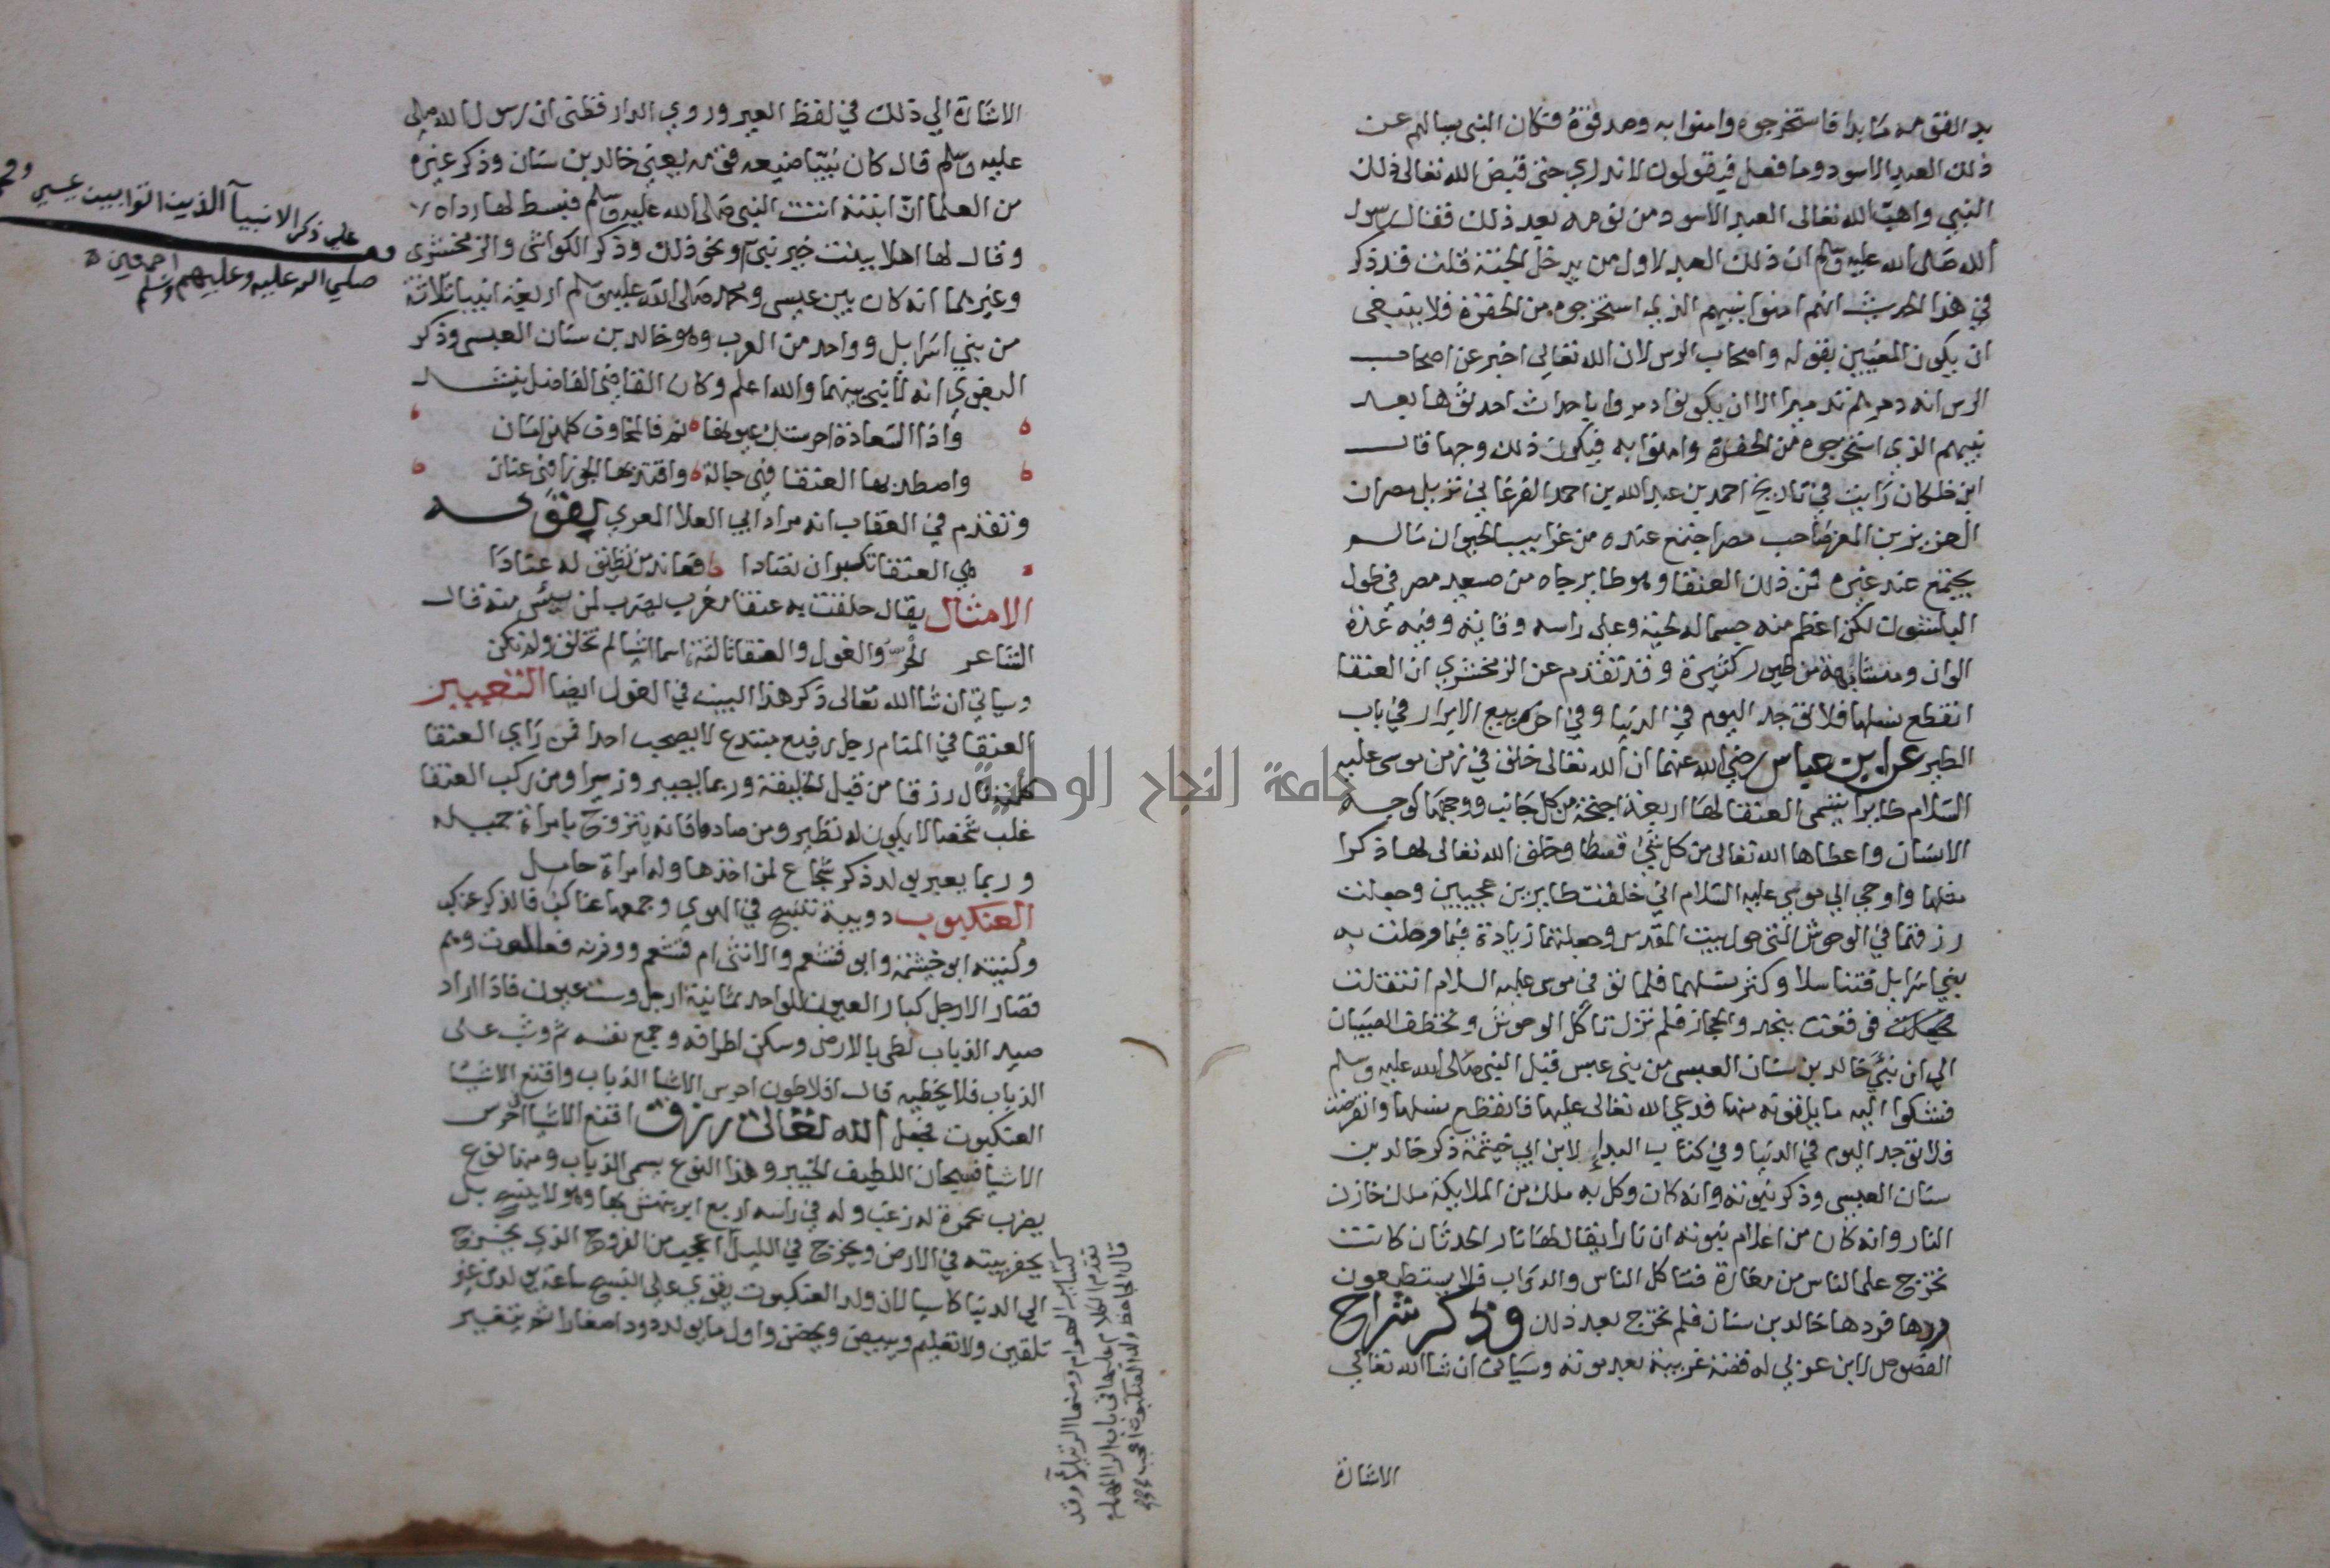 يد القومه ما بدا فاستخرجوه وامنوا به وصدقوه فكان النبي يسالهم عن
ذلك العبد الاسود وما فعل فيقولون لا ندري حتى قبض الله تعالى ذلك
النبي واهب الله تعالى العبد الاسود من نومه بعد ذلك فقال رسول
الله صلى الله عليه وسلم ان ذلك العبد لاول من يدخل الجنة قلت قد ذكر
في هذا الحديث انهم امنوا بنبيهم الذي استخرجوه من الحفرة فلا ينبغي
ان يكون المعنيين بقوله واصحاب الرس لان الله تعالى اخبر عن اصحاب
الرس انه دمرهم تدميرا الا ان يكونوا دمروا باحداث احدثوها بعد
نبيهم الذي استخرجوه من الحفرة وامنوا به فيكون ذلك وجها قال
ابن خلكان رايت في تاريخ احمد بن عبد الله بن احمد الفرغاني نزيل مصر ان
العزيز بن المعز صاحب مصر اجتمع عنده من غرايب الحيوان ما لم
يجتمع عند غيره فمن ذلك العنقا وهو طاير جاه من صعيد مصر في طول
البلشون لكن اعظم منه جسما له لحية وعلى راسه وقاية وفيه عدة
الوان ومشابهة من طيور كثيرة وقد تقدم عن الزمخشري ان العنقا
انقطع نسلها فلا توجد اليوم في الدنيا وفي اخر ربيع الابرار في باب
الطير عن ابن عباس رضي الله عنهما ان الله تعالى خلق في زمن موسى عليه
السلام طايرا يسمى العنقا لها اربعة اجنحة من كل جانب ووجهها كوجه
الانسان واعطاها الله تعالى من كل شي قسطا وخلق الله تعالى لها ذكرا
مثلها واوحى الى موسى عليه السلام اني خلقت طايرين عجيبين وجعلت
رزقهما في الوحوش التي حول بيت المقدس وجعلتهما زيادة فيما وصلت به
بني اسرايل فتناسلا وكثر نسلهما فلما توفي موسى عليه السلام انتقلت
فوقعت بنجد والحجاز فلم تزل تاكل الوحوش وتخطف الصبيان
الى ان نبئ خالد بن سنان العبسى من بني عبس قبل النبي صلى الله عليه وسلم
فشكوا اليه ما يلقونه منها فدعى الله تعالى عليها فانقطع نسلها وانقرضت
فلا توجد اليوم في الدنيا وفي كتاب البدا لابن ابي خيثمة ذكر خالد بن
سنان العبسى وذكر نبوته وانه كان وكل به ملك من الملايكة ملك خازن
النار وانه كان من اعلام نبوته ان نارا يقال لها نار الحدثان كانت
تخرج على الناس من مغارة فتاكل الناس والدواب فلا يستطيعون
ردها فردها خالد بن سنان فلم تخرج بعد ذلك وذكر شراح
الفصوص لابن عربي له قصة غريبة بعد موته وسياتي ان شا الله تعالى
الاشارة
الاشارة الي ذلك في لفظ العير وروي الدارقطني ان رسول الله صلى
عليه وسلم قال كان نبيا ضيعه قومه يعني خالد بن سنان وذكر غيره
من العلما ان ابنته اتت النبي صلى الله عليه وسلم فبسط لها رداه
وقال لها اهلا ببنت خير نبي او نحو ذلك وذكر الكواشي والزمخشري
وغيرهما انه كان بين عيسى ومحمد صلى الله عليه وسلم اربعة انبيا ثلاثة
من بني اسرايل وواحد من العرب وهو خالد بن سنان العبسى وذكر
البغوي انه لا نبي بينهما والله اعلم وكان القاضي الفاضل ينشد
واذا السعادة احرستك عيونها نم فالمخاوف كلهن امان
واصطد بها العنقا فهي حبالة واقتد بها الجوزا فهي عنان
وتقدم في العقاب انه مراد ابي العلا المعري بقوله
هي العنقا تكبر ان تصادا فعاند من تطيق له عنادا
الامثال يقال حلقت به عنقا مغرب يضرب لمن يئس منه قال
الشاعر الخل والغول والعنقا ثالثة اسما اشيا لم تخلق ولم تكن
وسياتي ان شا الله تعالى ذكر هذا البيت في الغول ايضا التعبير
العنقا في المنام رجل رفيع مبتدع لا يصحب احدا فمن راى العنقا
كلمته نال رزقا من قبل الخليفة وربما يصير وزيرا ومن ركب العنقا
غلب شخصا لا يكون له نظير ومن صادها فانه يتزوج بامراة جميله
وربما يعبر بولد ذكر شجاع لمن اخذها وله امراة حامل
العنكبوت دويبة تنسج في الهوي وجمعها عناكب والذكر عنكب
وكنيته ابو خيثمة وابو قشعم والانثى ام قشعم ووزنه فعللوت وهم
قصار الارجل كبار العيون للواحد ثمانية ارجل وست عيون فاذا اراد
صيد الذباب لطى بالارض وسكن اطرافه وجمع نفسه ثم وثب على
الذباب فلا يخطيه قال افلاطون احرص الاشيا الذباب واقنع الاشيا
العنكبوت فجعل الله تعالى رزق اقنع الاشيا احرص
الاشيا فسبحان اللطيف الخبير وهذا النوع يسمى الذباب ومنها نوع
يضرب بحمرة له زغب وله في راسه اربع ابر ينهش بها وهو لا ينسج بل
يحفر بيته في الارض ويخرج في الليل اعجب من الفروج الذي يخرج
الي الدنيا كاسيا لان ولد العنكبوت يقوي على النسج ساعة يولد من غير
تلقين ولا تعليم ويبيض ويحضن واول ما يولد دودا صغارا ثم يتغير
على ذكر الانبيا الذين اتوا بين عيسى
صلى الله عليه وعليهم وسلم اجمعين
كساير الهوام ومنها الرتيلا وقد
تقدم الكلام عليها في باب الرا المهملة
قال الجاحظ ولد العنكبوت اعجب
جامعة النجاح الوطنية